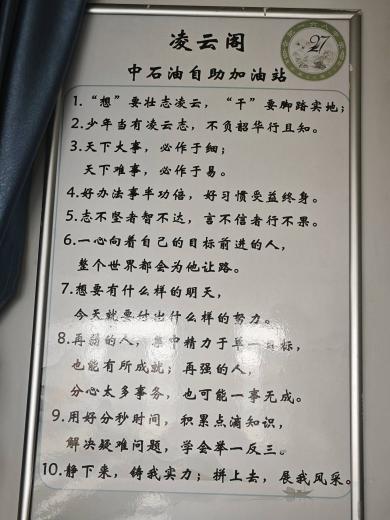 凌云阁
27
中石油自助加油站
1.“想”要壮志凌云，“干”要脚踏实地；
2.少年当有凌云志，不负韶华行且知。
3.天下大事，必作于细；
天下难事，必作于易。
4.好办法事半功倍，好习惯受益终身。
5.志不坚者智不达，言不信者行不果。
6.一心向着自己的目标前进的人，
整个世界都会为他让路。
7.想要有什么样的明天，
今天就要付出什么样的努力。
8.再弱的人，集中精力于单一目标，
也能有所成就；再强的人，
分心太多事务，也可能一事无成。
9.用好分秒时间，积累点滴知识，
解决疑难问题，学会举一反三。
10.静下来，铸我实力；拼上去，展我风采。